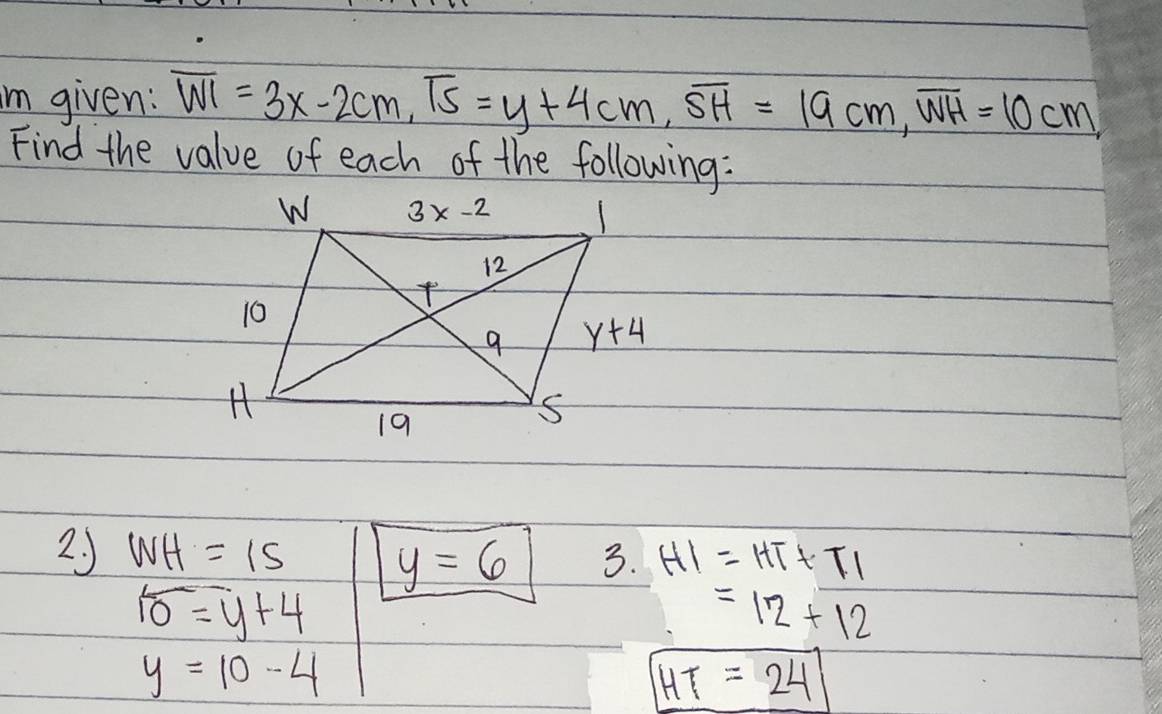 m given: WI = 3x - 2cm, IS = y + 4cm, SH = 19 cm, WH = 10 cm,
Find the value of each of the following:
W 3x - 2 I
12
T
10
9
y + 4
H
S
19
2.) WH = IS
10 = y + 4
y = 10 - 4
y = 6
3. HI = HT + TI
= 12 + 12
HT = 24